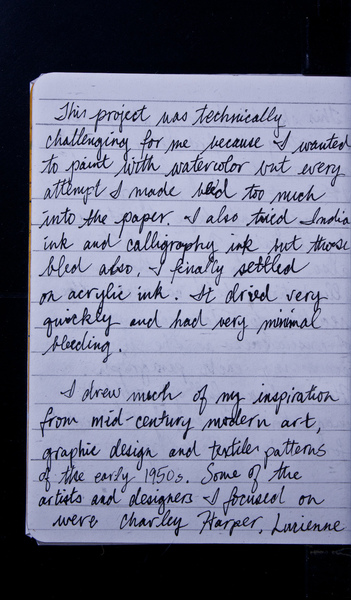 This project was technically
challenging for me because I wanted
to paint with watercolor but every
attempt I made bled too much
into the paper. I also tried India
ink and calligraphy ink but those
bled also. I finally settled
on acrylic ink. It dried very
quickly and had very minimal
bleeding.
I drew much of my inspiration
from mid-century modern art,
graphic design and textile patterns
of the early 1950s. Some of the
artists and designers I focused on
were Charley Harper, Lucienne